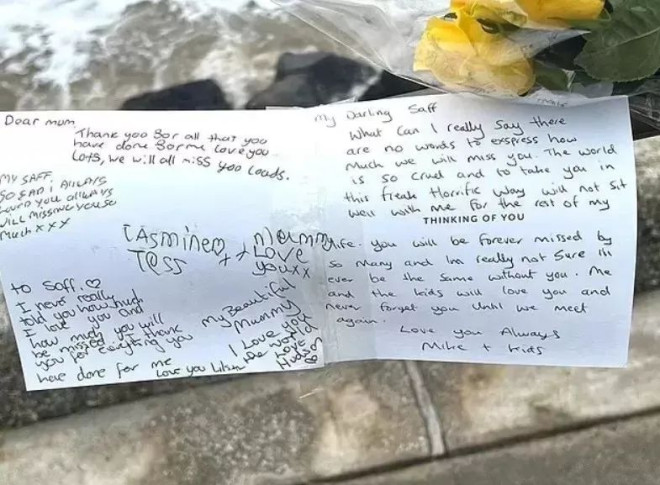 Dear mum
Thank you for all that you
have done for me Love you
Lots, we will all miss you Loads.
MY SAFF,
SO SAD i ALWAYS
LOVED YOU ALWAYS
WILL MISS YOU SO
MUCH X X X
Jasmine
Tess
Mummy
Love
you xx
to Saff.
I never really
told you how much
I love you and
how much you will
be missed. I thank
you for everything you
have done for me
love you
my Beautiful
Mummy
I Love you
the world
Love
Hudson
My Darling Saff
What Can I really Say there
are no words to express how
Much we will miss you. The world
is so Cruel and to take you in
this freak Horrific way will not sit
well with me for the rest of my
THINKING OF YOU
life. you will be forever missed by
so many and im really not Sure ill
ever be the same without you. Me
and the kids will love you and
never forget you until we meet
again.
Love you Always
Mike + kids